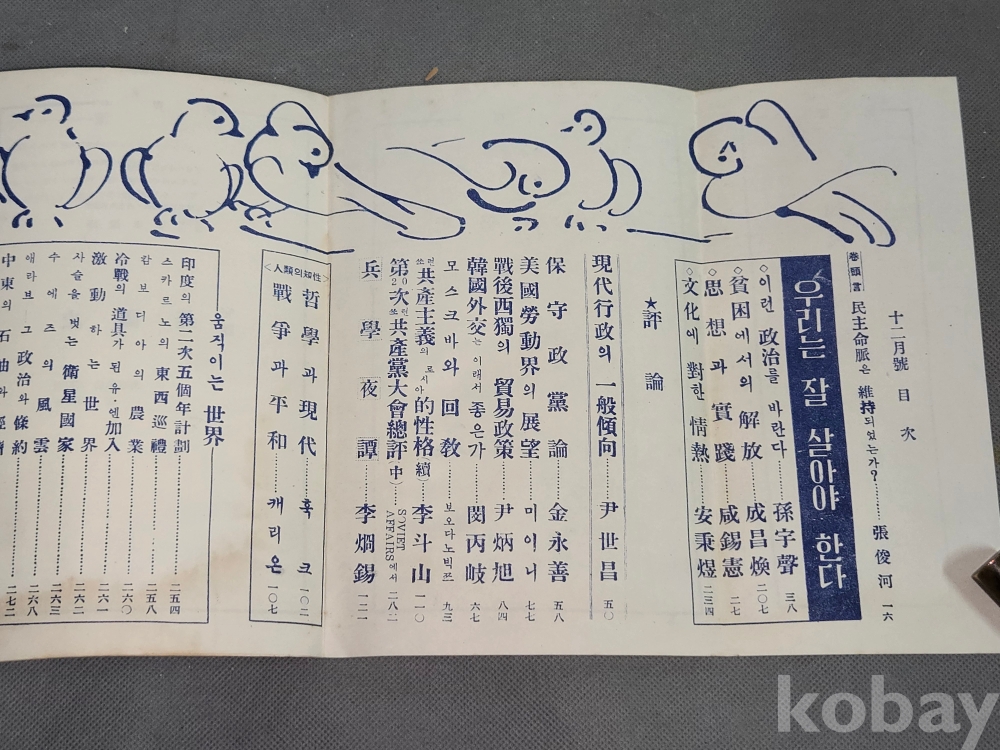 十二月號 目次
卷頭言 民主命脈은 維持되었는가?……張俊河 一六
우리는 잘 살아야 한다
◇이런 政治를 바란다……孫宇聲 三八
◇貧困에서의 解放……成昌煥 二〇七
◇思想과 實踐……咸錫憲 二七
◇文化에 對한 情熱……安秉煜 二三四
★評論
現代行政의 一般傾向……尹世昌 五〇
保守政黨論……金永善 五八
美國勞動界의 展望……미이니 七七
戰後西獨의 貿易政策……尹炳旭 八四
韓國外交는 이래서 좋은가……閔丙岐 六七
모스크바와 回敎……보오다노빅쯔 九三
共產主義의 로시아的性格(續)……李斗山 一一〇
第20次쏘련共產黨大會總評(中)……SOVIET AFFAIRS에서 二八二
兵學夜譚……李烱錫 一二一
<人類의 知性>
哲學과 現代……혹크 一〇二
戰爭과 平和……캐리온 一〇七
움직이는 世界
印度의 第二次五個年計劃……二五四
스카르노의 東西巡禮……二五八
캄보디아의 農業……二六〇
冷戰의 道具가 된 유·엔加入……二六一
激動하는 世界……二六二
사슬을 벗는 衛星國家……二六三
수에즈의 風雲……二六八
애라브 그 政治와 條約……二七二
中東의 石油와 經濟
kobay